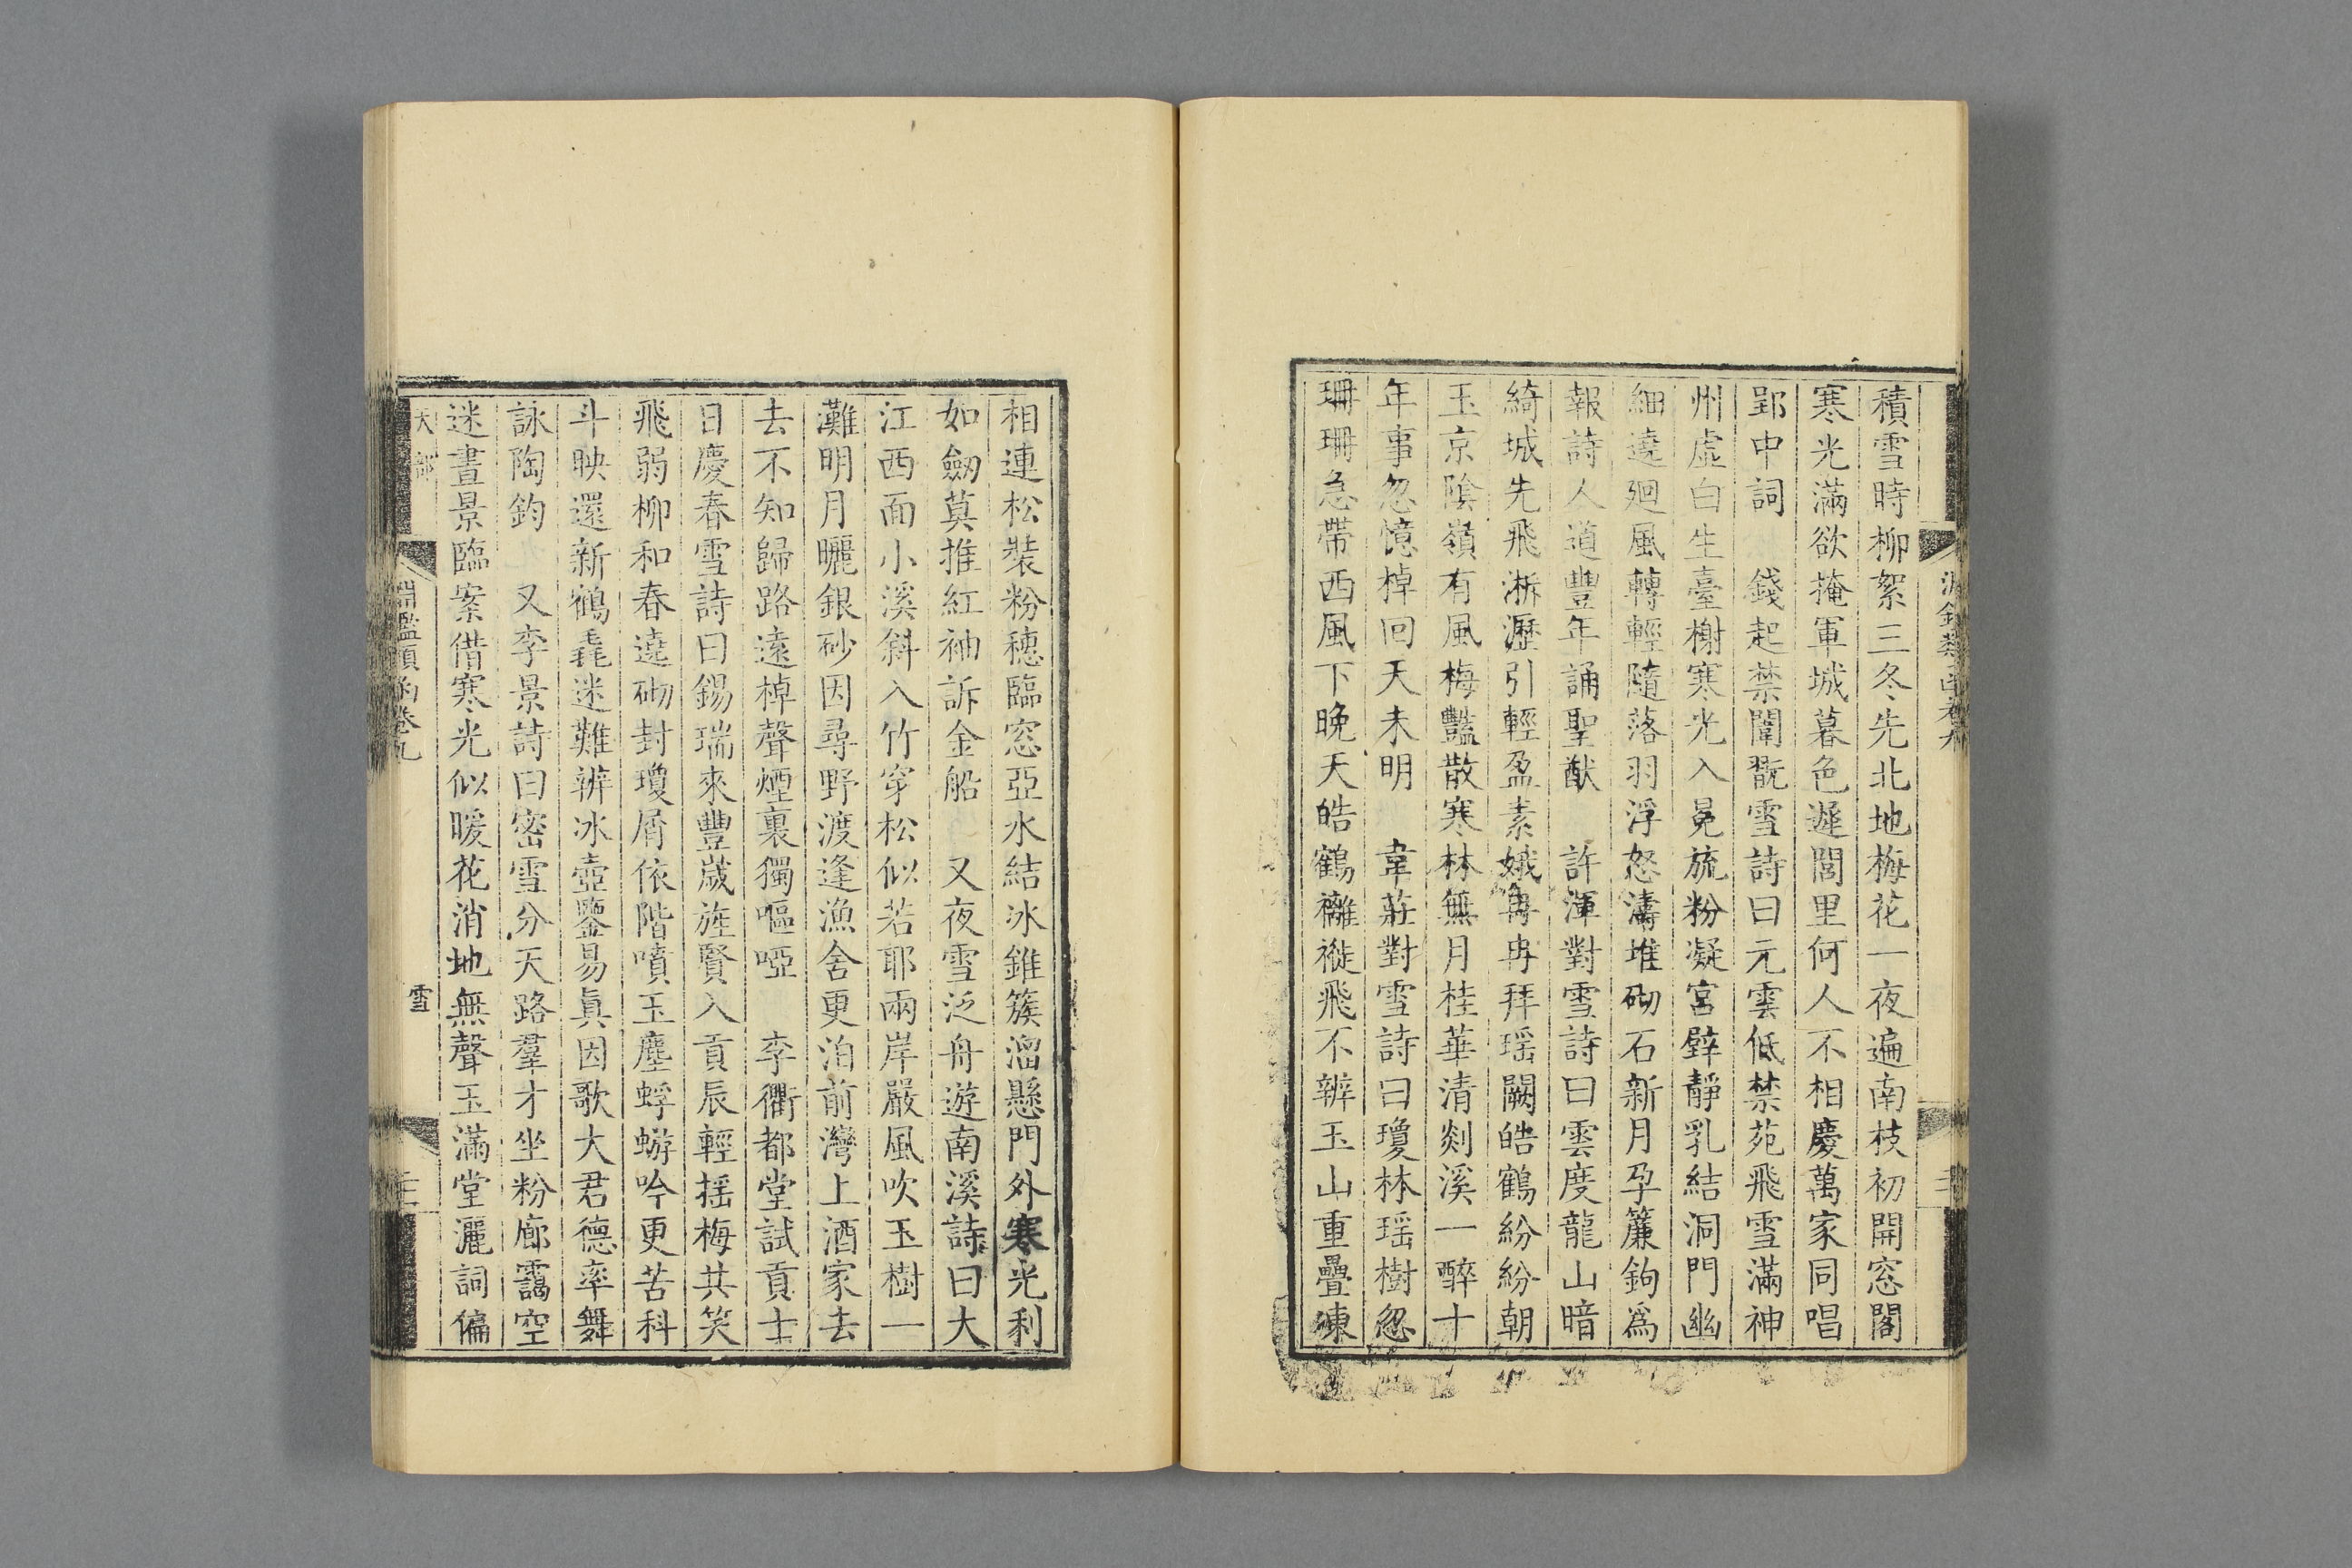 積雪時柳絮三冬先北地梅花一夜遍南枝初開窓閣
寒光滿欲掩軍城暮色遲閭里何人不相慶萬家同唱
郢中詞 錢起禁闈翫雪詩曰元雲低禁苑飛雪滿神
州虛白生臺榭寒光入冕旒粉凝宮壁靜乳結洞門幽
細遶迴風轉輕隨落羽浮怒濤堆砌石新月孕簾鉤爲
報詩人道豐年誦聖猷 許渾對雪詩曰雲度龍山暗
綺城先飛淅瀝引輕盈素娥冉冉拜瑶闕皓鶴紛紛朝
玉京陰嶺有風梅豔散寒林無月桂華清剡溪一醉十
年事忽憶棹回天未明 韋莊對雪詩曰瓊林瑶樹忽
珊珊急帶西風下晚天皓鶴襂褷飛不辨玉山重疊凍
相連松裝粉穗臨窓亞水結冰錐簇溜懸門外寒光利
如劔莫推紅袖訴金船 又夜雪泛舟遊南溪詩曰大
江西面小溪斜入竹穿松似若耶兩岸嚴風吹玉樹一
灘明月曬銀砂因尋野渡逢漁舍更泊前灣上酒家去
去不知歸路遠棹聲煙裏獨嘔啞 李衢都堂試貢士
日慶春雪詩曰錫瑞來豐歲旌賢入貢辰輕揺梅共笑
飛弱柳和春遶砌封瓊屑依階噴玉塵蜉蝣吟更苦科
斗映還新鶴毳迷難辨冰壺鑒易眞因歌大君德率舞
詠陶鈞 又李景詩曰密雪分天路羣才坐粉廊靄空
迷晝景臨案借寒光似暖花消地無聲玉滿堂灑詞偏
天部 淵鑑類函卷九 雪